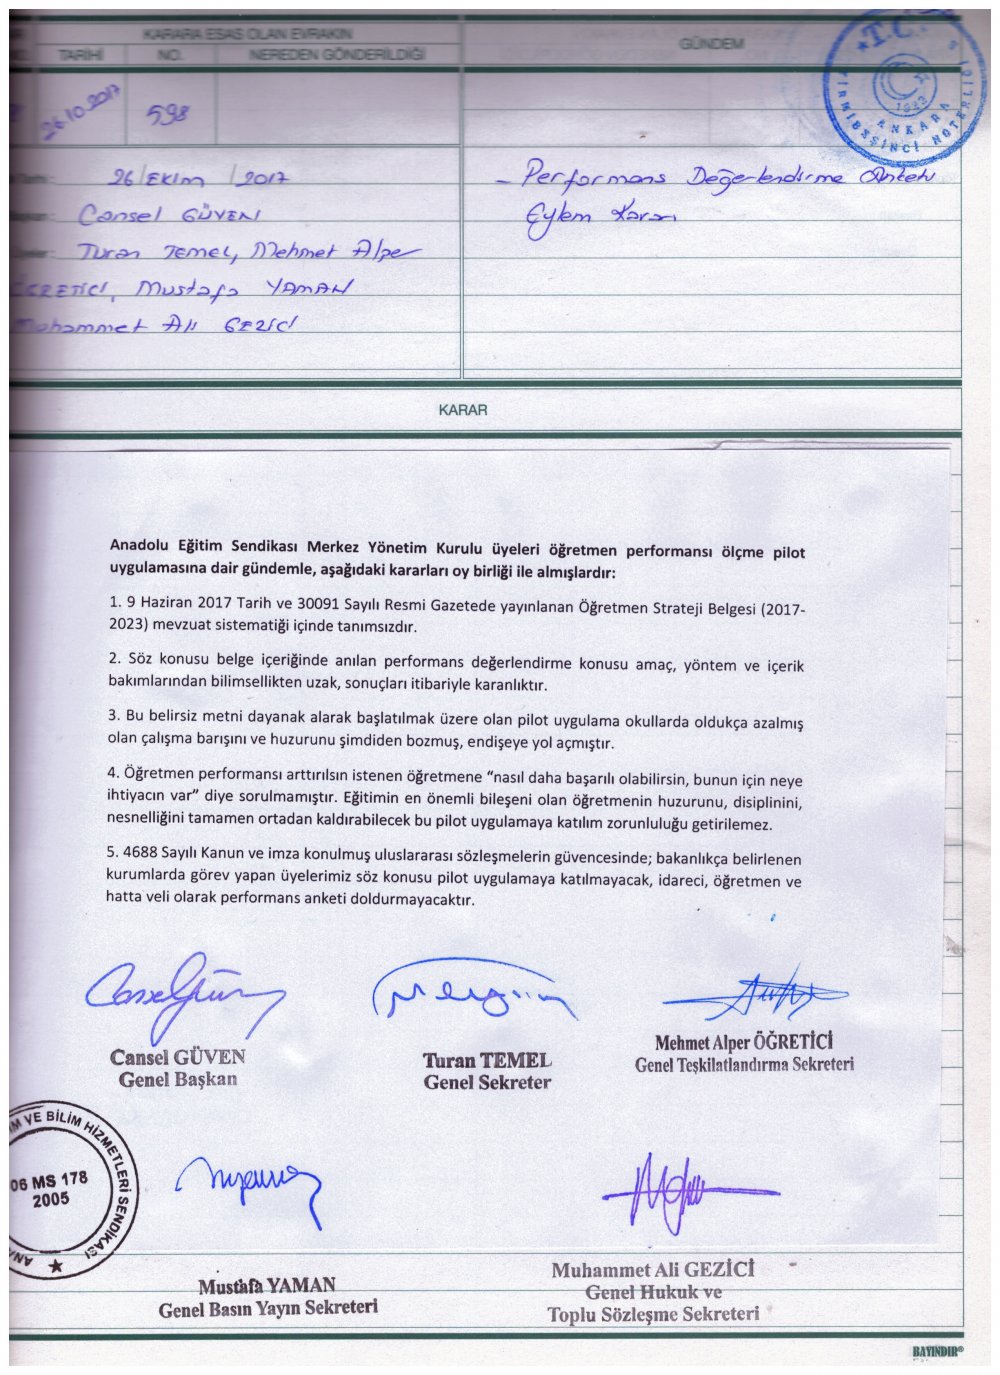 KARARA ESAS OLAN EVRAKIN
TARİHİ NO. NEREDEN GÖNDERİLDİĞİ
GÜNDEM
26.10.2017 598
T.C.
YİRMİBEŞİNCİ NOTERLİĞİ
ANKARA
1923
26/EKİM/2017
Cansel GÜVEN
Turan TEMEL, Mehmet Alper
ÖĞRETİCİ, Mustafa YAMAN
Muhammet Ali GEZİCİ
- Performans Değerlendirme Anketi
Eylem Kararı
KARAR
Anadolu Eğitim Sendikası Merkez Yönetim Kurulu üyeleri öğretmen performansı ölçme pilot
uygulamasına dair gündemle, aşağıdaki kararları oy birliği ile almışlardır:
1. 9 Haziran 2017 Tarih ve 30091 Sayılı Resmi Gazetede yayınlanan Öğretmen Strateji Belgesi (2017-
2023) mevzuat sistematiği içinde tanımsızdır.
2. Söz konusu belge içeriğinde anılan performans değerlendirme konusu amaç, yöntem ve içerik
bakımlarından bilimsellikten uzak, sonuçları itibariyle karanlıktır.
3. Bu belirsiz metni dayanak alarak başlatılmak üzere olan pilot uygulama okullarda oldukça azalmış
olan çalışma barışını ve huzurunu şimdiden bozmuş, endişeye yol açmıştır.
4. Öğretmen performansı arttırılsın istenen öğretmene “nasıl daha başarılı olabilirsin, bunun için neye
ihtiyacın var” diye sorulmamıştır. Eğitimin en önemli bileşeni olan öğretmenin huzurunu, disiplinini,
nesnelliğini tamamen ortadan kaldırabilecek bu pilot uygulamaya katılım zorunluluğu getirilemez.
5. 4688 Sayılı Kanun ve imza konulmuş uluslararası sözleşmelerin güvencesinde; bakanlıkça belirlenen
kurumlarda görev yapan üyelerimiz söz konusu pilot uygulamaya katılmayacak, idareci, öğretmen ve
hatta veli olarak performans anketi doldurmayacaktır.
Cansel GÜVEN
Genel Başkan
Turan TEMEL
Genel Sekreter
Mehmet Alper ÖĞRETİCİ
Genel Teşkilatlandırma Sekreteri
VE BİLİM HİZMETLERİ SENDİKASI
06 MS 178
2005
Mustafa YAMAN
Genel Basın Yayın Sekreteri
Muhammet Ali GEZİCİ
Genel Hukuk ve
Toplu Sözleşme Sekreteri
BAYINDIR®